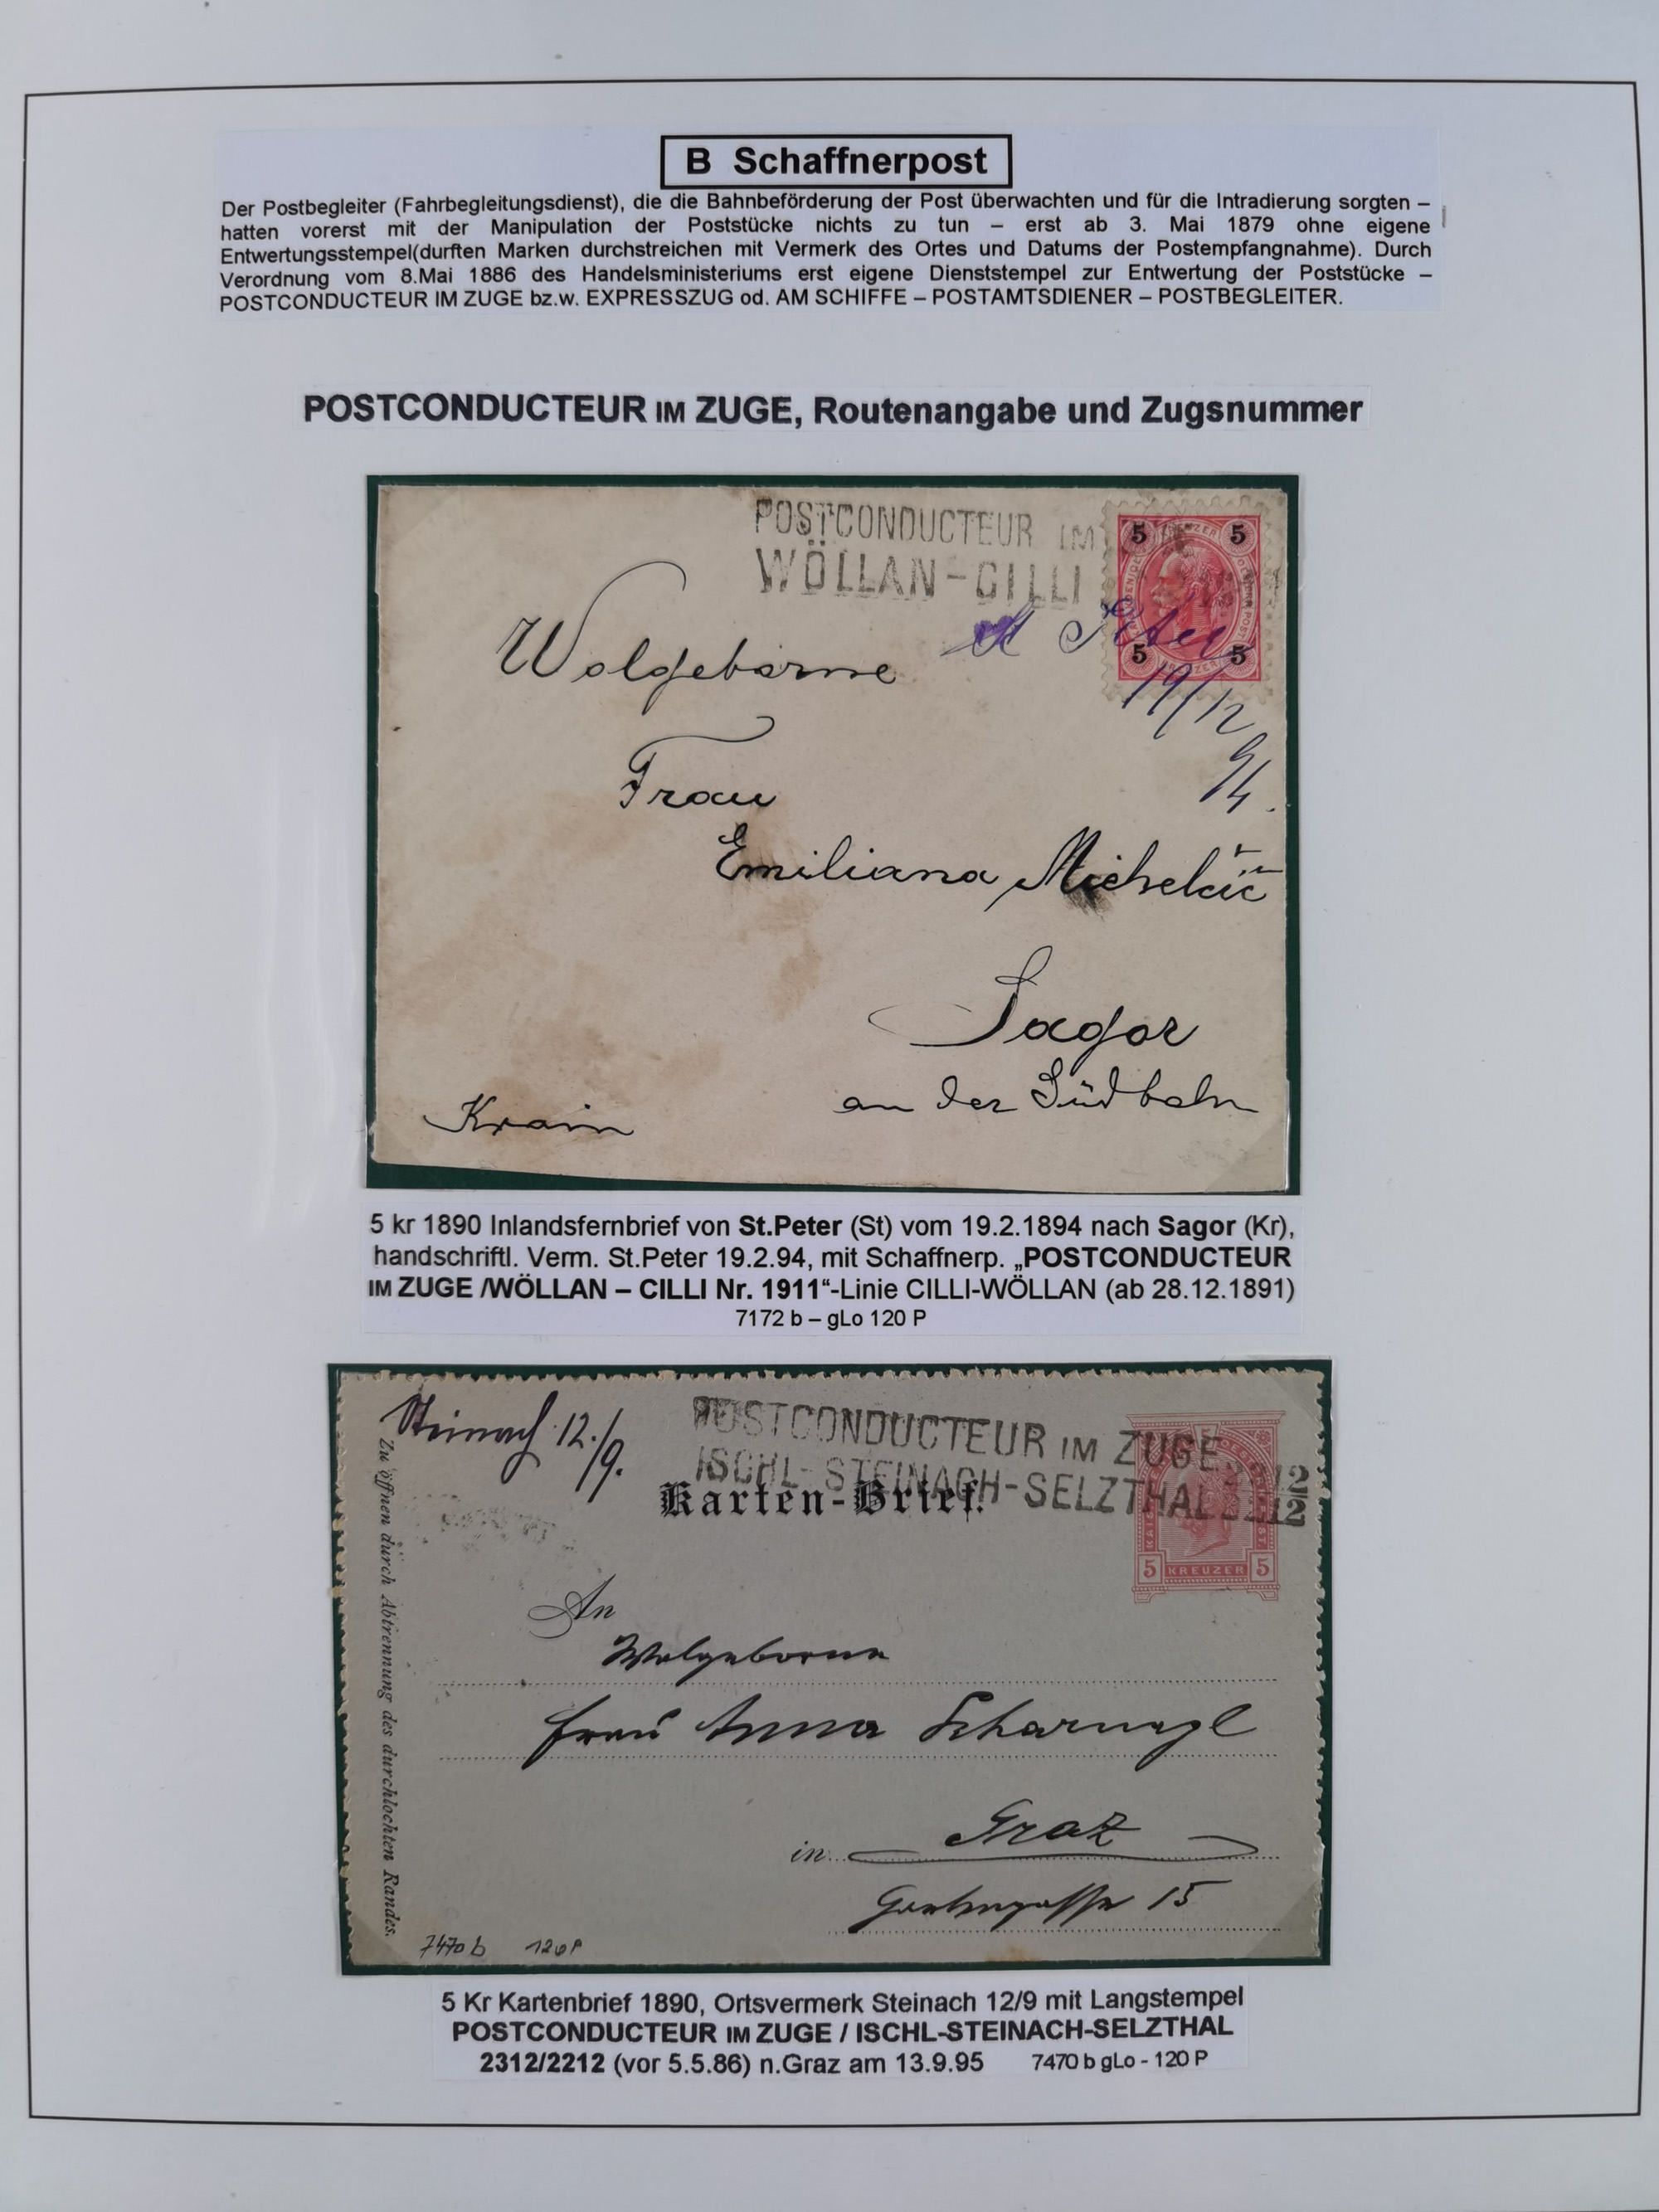 B Schaffnerpost
Der Postbegleiter (Fahrbegleitungsdienst), die die Bahnbeförderung der Post überwachten und für die Intradierung sorgten –
hatten vorerst mit der Manipulation der Poststücke nichts zu tun – erst ab 3. Mai 1879 ohne eigene
Entwertungsstempel(durften Marken durchstreichen mit Vermerk des Ortes und Datums der Postempfangnahme). Durch
Verordnung vom 8.Mai 1886 des Handelsministeriums erst eigene Dienststempel zur Entwertung der Poststücke –
POSTCONDUCTEUR IM ZUGE bz.w. EXPRESSZUG od. AM SCHIFFE – POSTAMTSDIENER – POSTBEGLEITER.
POSTCONDUCTEUR IM ZUGE, Routenangabe und Zugsnummer
POSTCONDUCTEUR IM
WÖLLAN-CILLI
5 5
5 5
St Peter
19/12
94.
Wolgeborne
Frau
Emiliana Michelčič
Sagor
an der Südbahn
Krain
5 kr 1890 Inlandsfernbrief von St.Peter (St) vom 19.2.1894 nach Sagor (Kr),
handschriftl. Verm. St.Peter 19.2.94, mit Schaffnerp. „POSTCONDUCTEUR
IM ZUGE /WÖLLAN – CILLI Nr. 1911“-Linie CILLI-WÖLLAN (ab 28.12.1891)
7172 b – gLo 120 P
Steinach 12./9.
POSTCONDUCTEUR IM ZUGE
ISCHL-STEINACH-SELZTHAL
Karten-Brief.
5 KREUZER 5
Zu öffnen durch Abtrennung des durchlochten Randes.
An
Wolgeborne
Frau Anna Scharnagl
in Graz
15
7470 b 120 P
5 Kr Kartenbrief 1890, Ortsvermerk Steinach 12/9 mit Langstempel
POSTCONDUCTEUR IM ZUGE / ISCHL-STEINACH-SELZTHAL
2312/2212 (vor 5.5.86) n.Graz am 13.9.95 7470 b gLo - 120 P